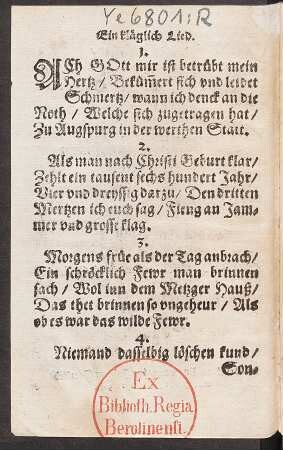 Ye 6801:R
Ein kläglich Lied.
1.
ACh GOtt mir ist betrübt mein
Hertz / Bekümert sich vnd leidet
Schmertz / wann ich denck an die
Noth / Welche sich zugetragen hat /
Zu Augspurg in der werthen Statt.
2.
Als man nach Christi Geburt klar /
Zehlt ein tausent sechs hundert Jahr /
Vier vnd dreyssig darzu / Den dritten
Mertzen ich euch sag / Fieng an Jam-
mer vnd grosse klag.
3.
Morgens früe als der Tag anbrach /
Ein schröcklich Fewr man brinnen
sach / Wol inn dem Metzger Hauß /
Das thet brinnen so vngeheur / Als
ob es war das wilde Fewr.
4.
Niemand dasselbig löschen kund /
Son-
Ex
Biblioth. Regia
Berolinensi.